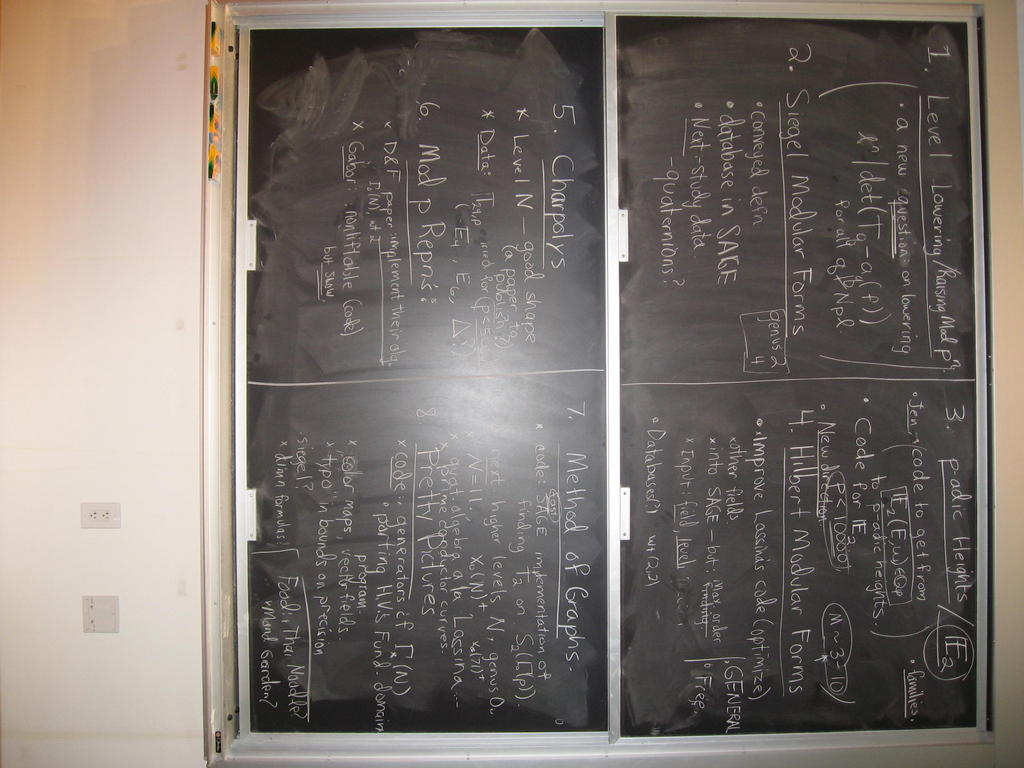 1. Level Lowering/Raising Mod p?
• a new question on lowering
ℓⁿ | det(T_q - a_q(f))
for all q ∤ Npl
2. Siegel Modular Forms
genus 2
4
• Conveyed defn
• database in SAGE
• Neat-study data.
- quaternions?
3. padic Heights / E₂
• families.
• Jen → (code to get from
E₂(E,ω) ∈ Qp
to p-adic heights.)
• Code for E₂
• New direction
4. Hilbert Modular Forms
• Improve Lassina's code (optimize)
× other fields
× into SAGE - but max order
finding
GENERAL
• Free
× Input: field, level
• Databases() wt (2,2)
5. Charpolys
* Level N — good shape
(a paper to
publish?)
* Data:
(E₄, E₆, Δ?)
6. Mod p Repn's:
× D&F paper-implement their alg.
Γ₁(N), wt 2
× Gabor: nonliftable (code)
but slow.
7. Method of Graphs.
× code: SAGE implementation of
finding T₂ on S₂(Γ₀(p))
next: higher levels N, genus 0.
N=11. X₁(N) +
× quat. algebra a la Lassina...
8 Pretty Pictures
× code: generators of Γ₀(N)
• porting H.V.'s fund. domain
program.
× color maps, vector fields,
× typo in bounds on precision
siegel?
× dim formulas?
Food: Thai Noodle?
Wild Garden?